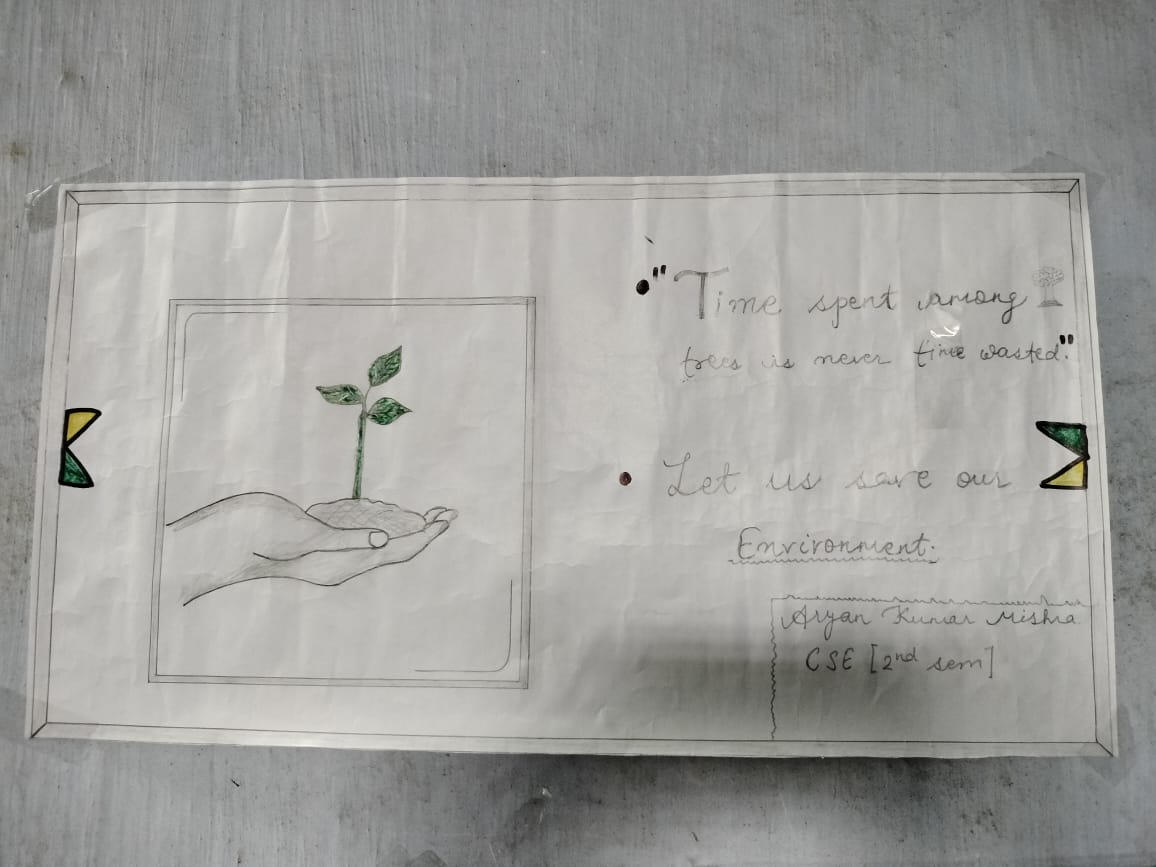 "Time spent among
trees is never time wasted."
Let us save our
Environment.
Aryan Kumar Mishra
CSE [2nd sem]